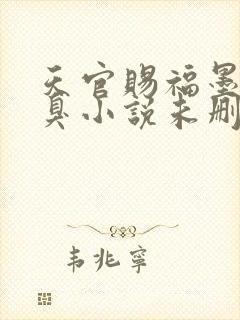 天官赐福墨
臭小说未删
韦兆宁